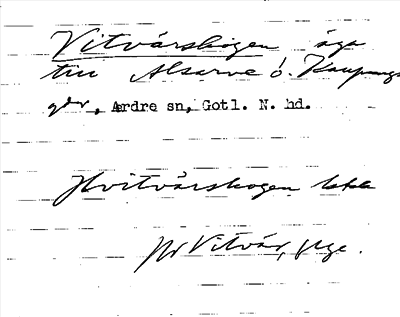 Vitvärskogen äga
till Alsarve o. Kaupungs
gdr, Ardre sn, Gotl. N. hd.
Hvitvärskogen
Vitvär,